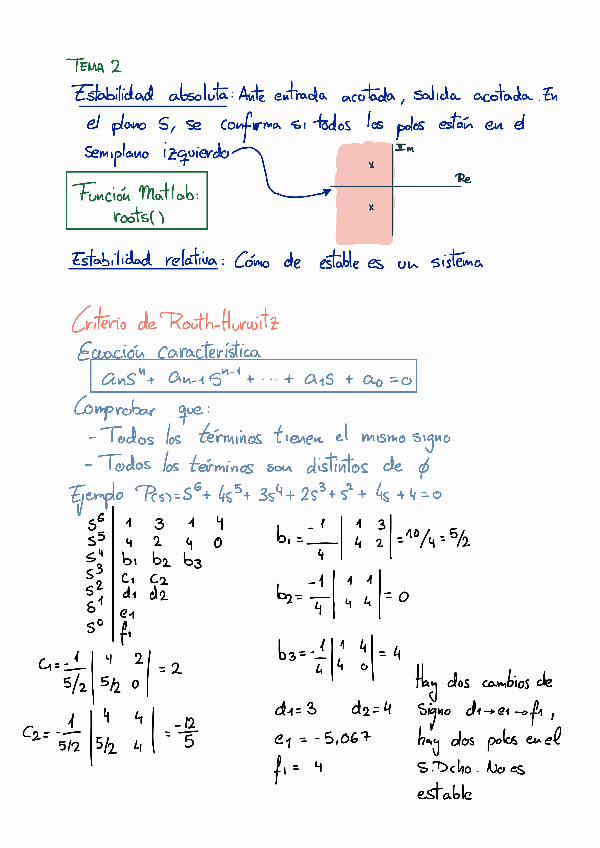 TEMA 2
Estabilidad absoluta: Ante entrada acotada, salida acotada. En
el plano S, se confirma si todos los polos están en el
semiplano izquierdo
Im
Re
Función Matlab:
roots()
Estabilidad relativa: Cómo de estable es un sistema
Criterio de Routh-Hurwitz
Ecuación característica
aₙsⁿ + aₙ₋₁sⁿ⁻¹ + ... + a₁s + a₀ = 0
Comprobar que:
- Todos los términos tienen el mismo signo
- Todos los términos son distintos de ϕ
Ejemplo P(s) = s⁶ + 4s⁵ + 3s⁴ + 2s³ + s² + 4s + 4 = 0
s⁶ | 1 3 1 4
s⁵ | 4 2 4 0
s⁴ | b₁ b₂ b₃
s³ | c₁ c₂
s² | d₁ d₂
s¹ | e₁
s⁰ | f₁
b₁ = -1/4 |1 3; 4 2| = 10/4 = 5/2
b₂ = -1/4 |1 1; 4 4| = 0
b₃ = -1/4 |1 4; 4 0| = 4
c₁ = -1/5/2 |4 2; 5/2 0| = 2
c₂ = -1/5/2 |4 4; 5/2 4| = -12/5
d₁ = 3 d₂ = 4
e₁ = -5,067
f₁ = 4
Hay dos cambios de
signo d₁→e₁→f₁,
hay dos polos en el
S.Dcho. No es
estable